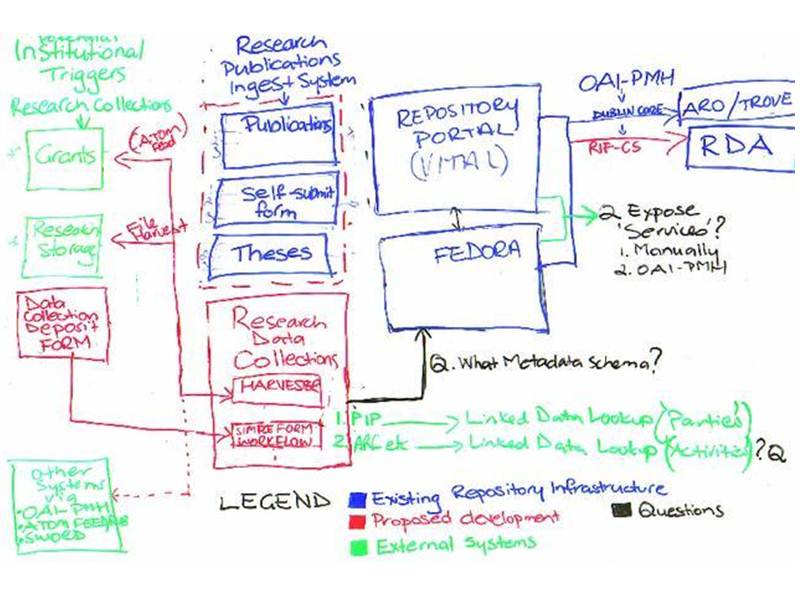 Institutional
Triggers
Research Collections
Grants
(ATOM
feed)
Research
Storage
File
Harvest
Data
Collection
Deposit
FORM
Other
Systems
via
• OAI PMH
• ATOM FEEDS
• SWORD
Research
Publications
Ingest System
Publications
Self-submit
form
Theses
Research
Data
Collections
HARVESTER
SIMPLE FORM
WORKFLOW
REPOSITORY
PORTAL
(VITAL)
FEDORA
OAI-PMH
DUBLIN CORE
RIF-CS
ARO/TROVE
RDA
2. Expose
'Services'?
1. Manually
2. OAI-PMH
Q. What Metadata schema?
1. PIP → Linked Data Lookup ('Parties')
2. ARC etc → Linked Data Lookup ('Activities') ? Q
LEGEND
Existing Repository Infrastructure
Proposed development
External systems
Questions